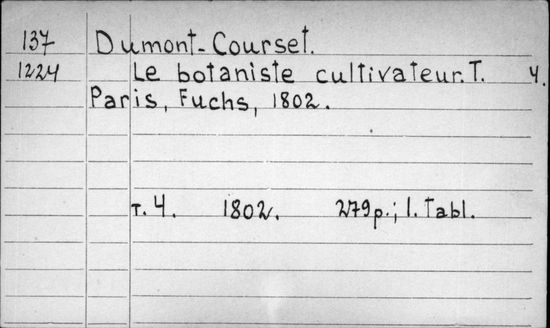 137 Dumont-Courset.
1224 Le botaniste cultivateur. T. 4.
Paris, Fuchs, 1802.
т. 4. 1802. 279 p.; 1. Tabl.